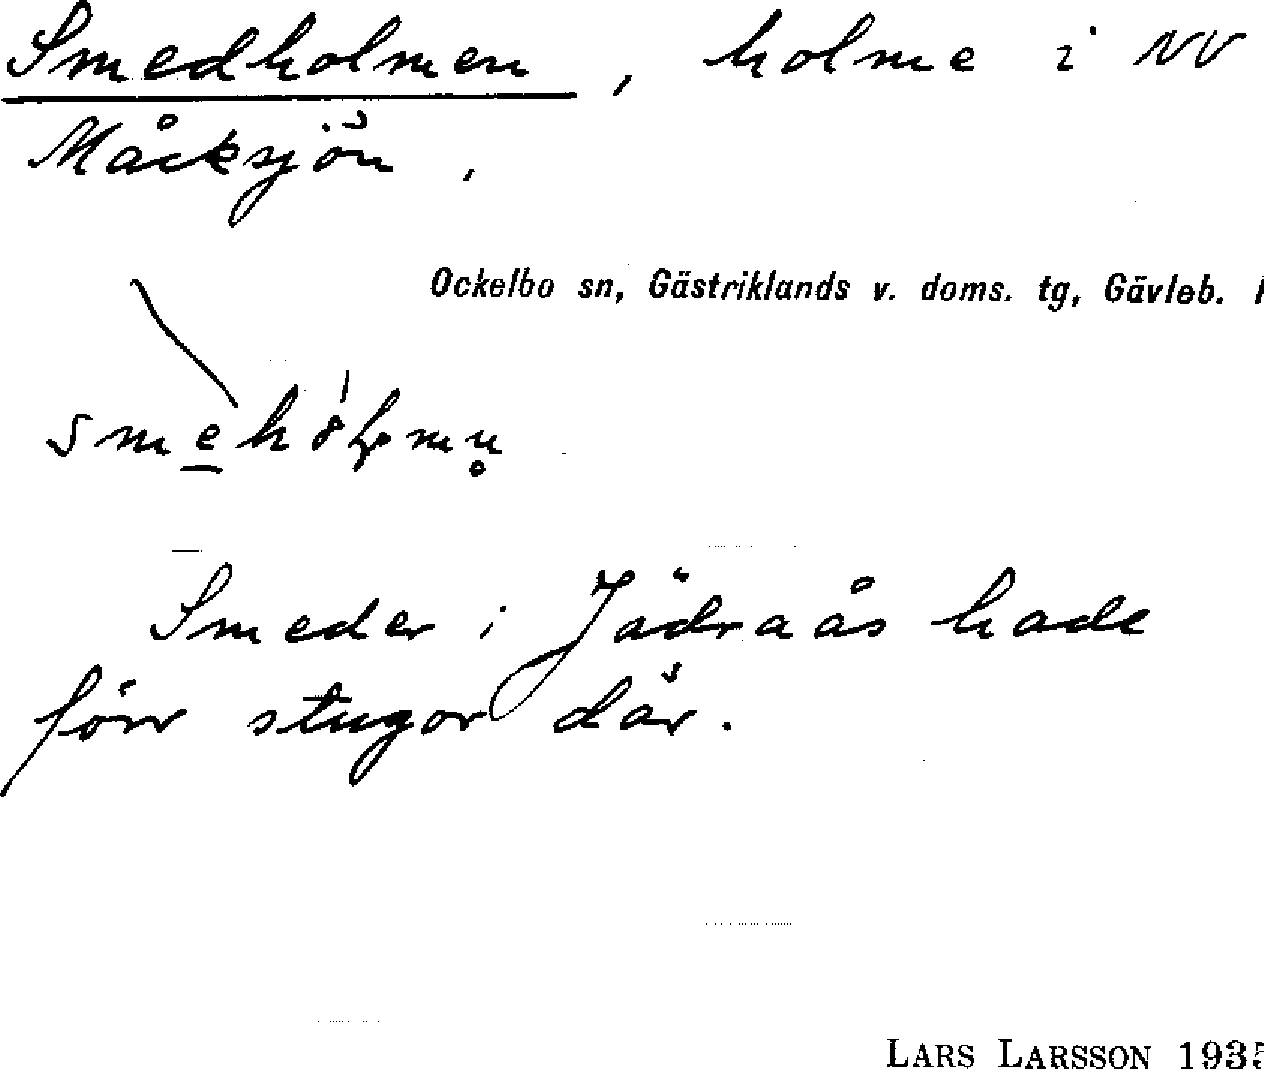 Smedholmen, holme i NV
Måcksjön.
Ockelbo sn, Gästriklands v. doms. tg, Gävleb. l
Smeder i Jädraås hade
förr stugor där.
LARS LARSSON 1935